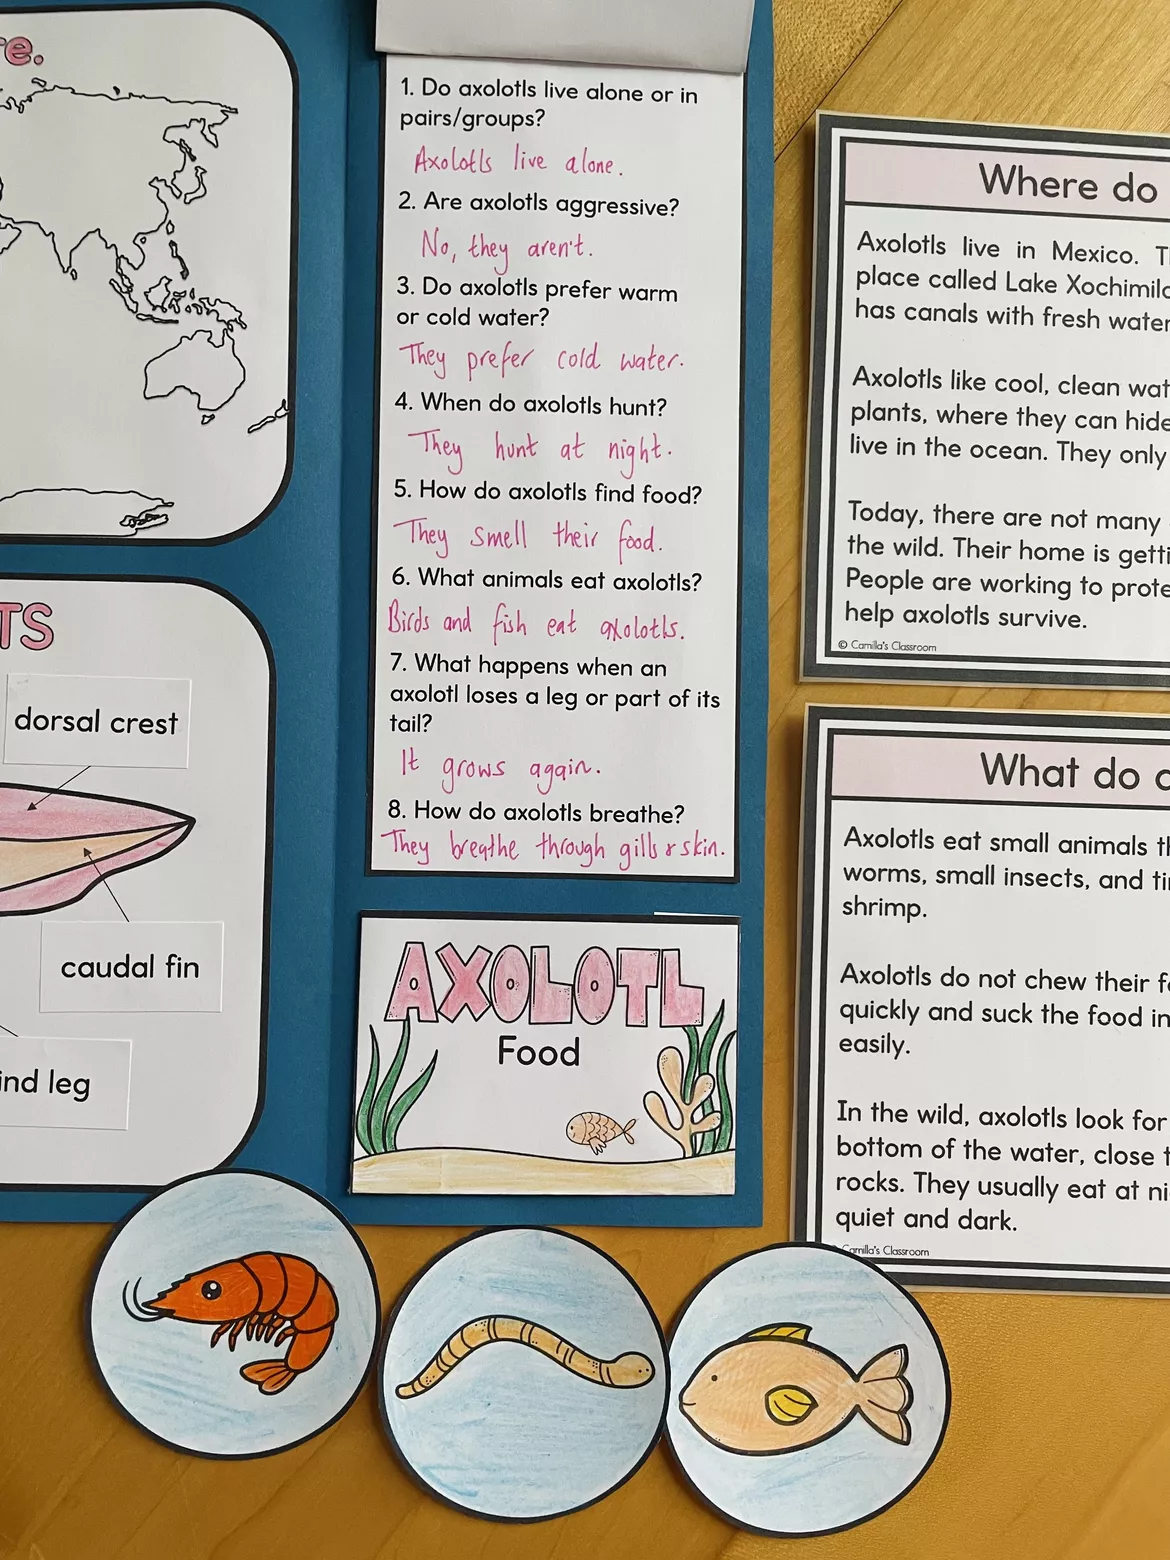 re.
TS
dorsal crest
caudal fin
ind leg
1. Do axolotls live alone or in
pairs/groups?
Axolotls live alone.
2. Are axolotls aggressive?
No, they aren't.
3. Do axolotls prefer warm
or cold water?
They prefer cold water.
4. When do axolotls hunt?
They hunt at night.
5. How do axolotls find food?
They smell their food.
6. What animals eat axolotls?
Birds and fish eat axolotls.
7. What happens when an
axolotl loses a leg or part of its
tail?
It grows again.
8. How do axolotls breathe?
They breathe through gills & skin.
AXOLOTL
Food
Where do
Axolotls live in Mexico. T
place called Lake Xochimilc
has canals with fresh water
Axolotls like cool, clean wat
plants, where they can hide
live in the ocean. They only
Today, there are not many
the wild. Their home is getti
People are working to prote
help axolotls survive.
© Camilla's Classroom
What do a
Axolotls eat small animals th
worms, small insects, and ti
shrimp.
Axolotls do not chew their f
quickly and suck the food in
easily.
In the wild, axolotls look for
bottom of the water, close t
rocks. They usually eat at ni
quiet and dark.
Camilla's Classroom